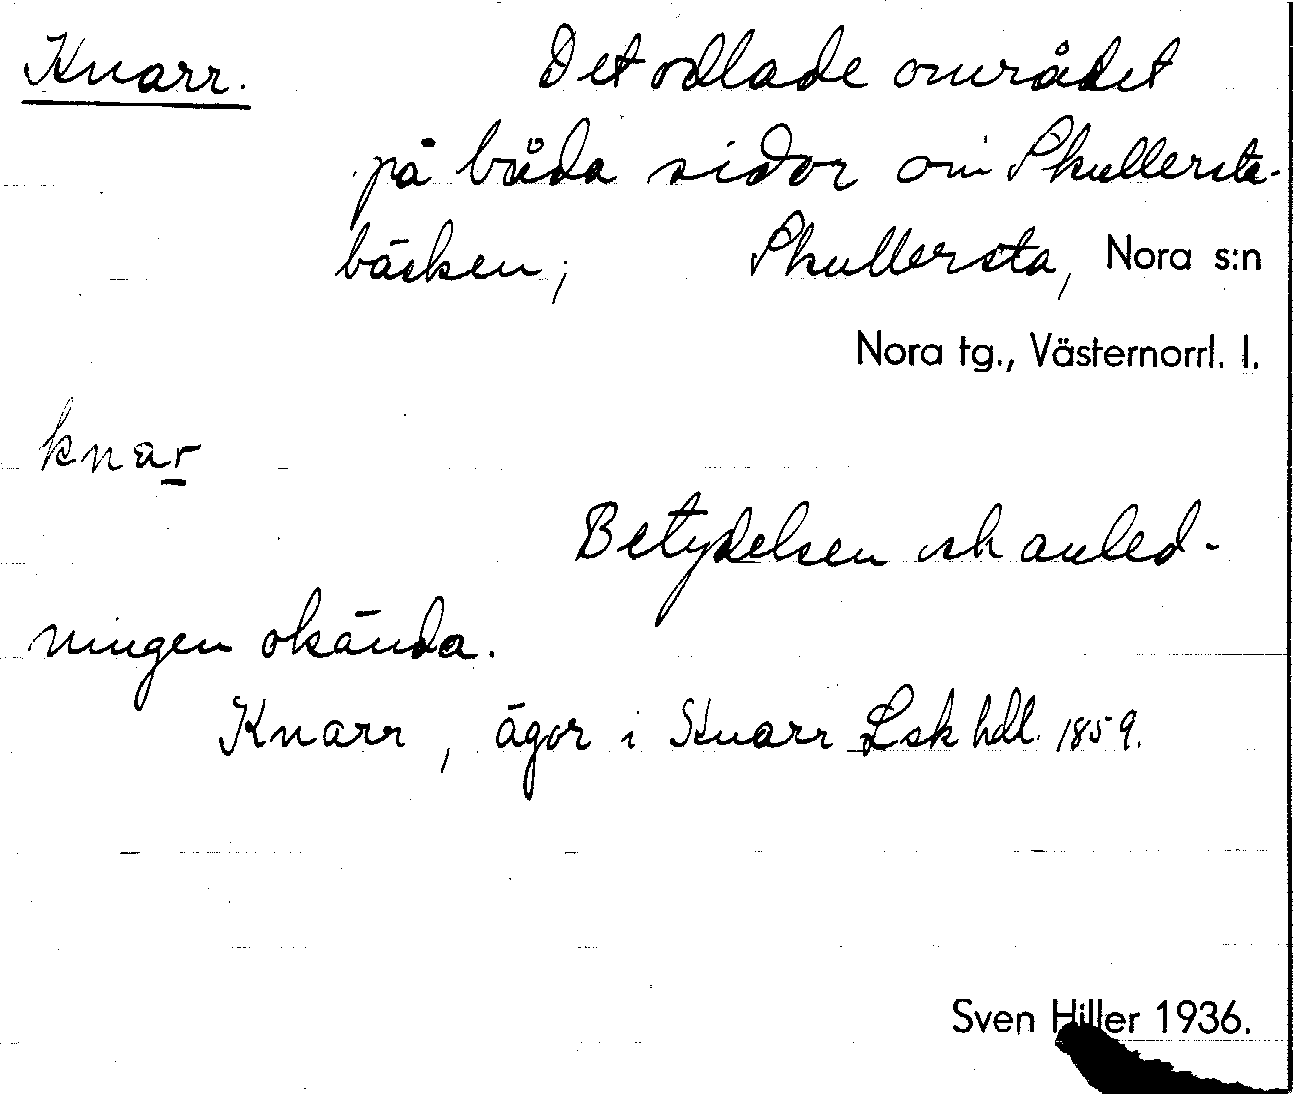 Knarr. Det odlade området
på båda sidor om Skullersta-
bäcken; Skullersta, Nora s:n
Nora tg., Västernorrl. l.
knar
Betydelsen och anled-
ningen okända.
Knarr, ägor i Knarr Lsk hdl. 1859.
Sven Hiller 1936.